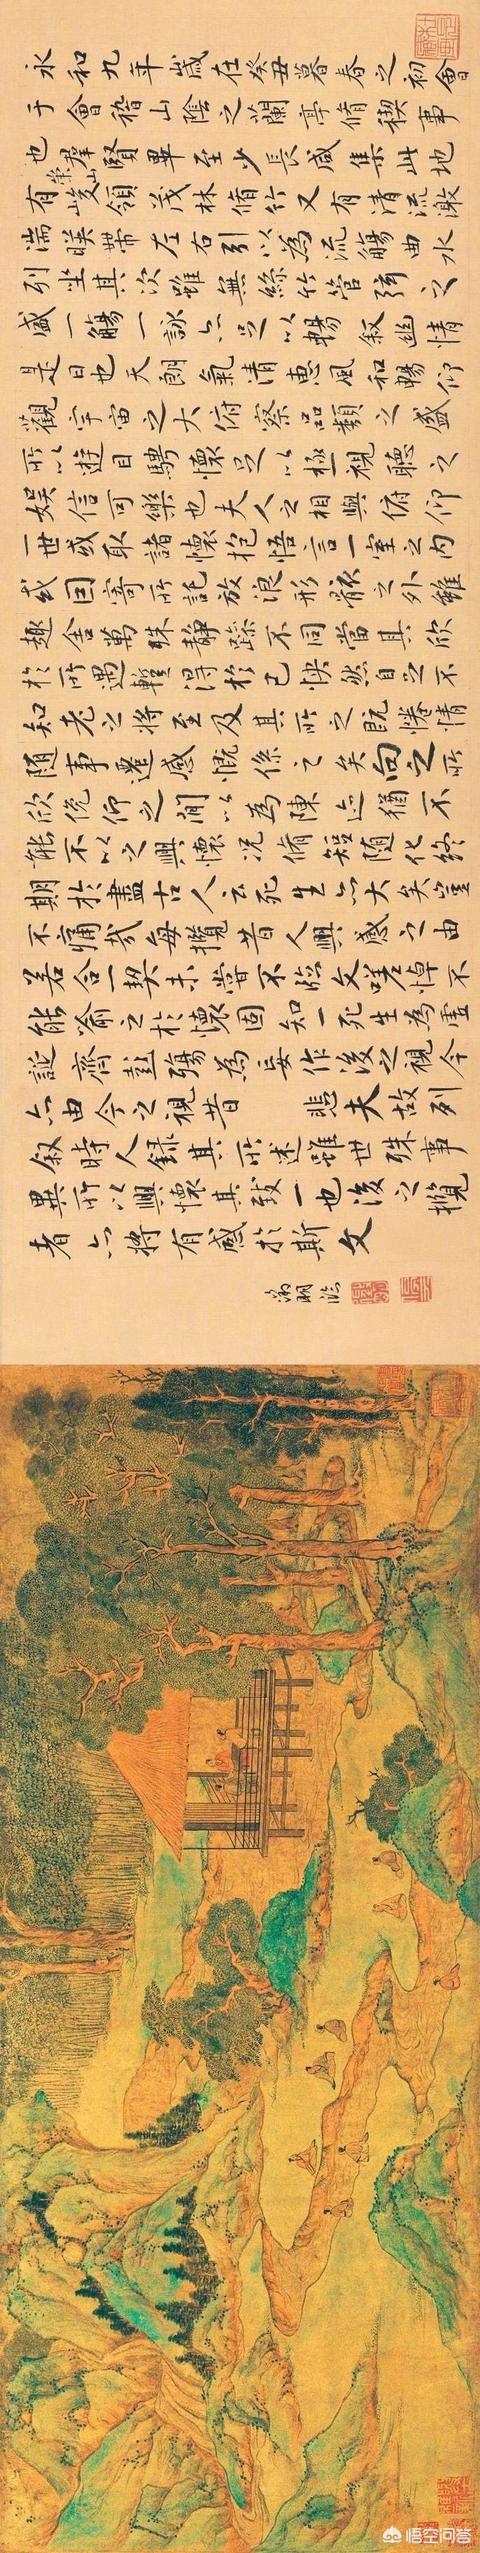 永和九年歲在癸丑暮春之初會
于會稽山陰之蘭亭脩稧事
也群賢畢至少長咸集此地
有崇山峻領茂林脩竹又有清流激
湍暎帶左右引以為流觴曲水
列坐其次雖無絲竹管弦之
盛一觴一詠亦足以暢敘幽情
是日也天朗氣清惠風和暢仰
觀宇宙之大俯察品類之盛
所以遊目騁懷足以極視聽之
娛信可樂也夫人之相與俯仰
一世或取諸懷抱悟言一室之內
或因寄所託放浪形骸之外雖
趣舍萬殊靜躁不同當其欣
於所遇暫得於己怏然自足不
知老之將至及其所之既惓情
隨事遷感慨係之矣向之所
欣俛仰之間以為陳迹猶不
能不以之興懷況脩短隨化終
期於盡古人云死生亦大矣豈
不痛哉每攬昔人興感之由
若合一契未嘗不臨文嗟悼不
能喻之於懷固知一死生為虛
誕齊彭殤為妄作後之視今
亦由今之視昔 悲夫故列
敘時人錄其所述雖世殊事
異所以興懷其致一也後之攬
者亦將有感於斯文
徵明臨
悟空问答